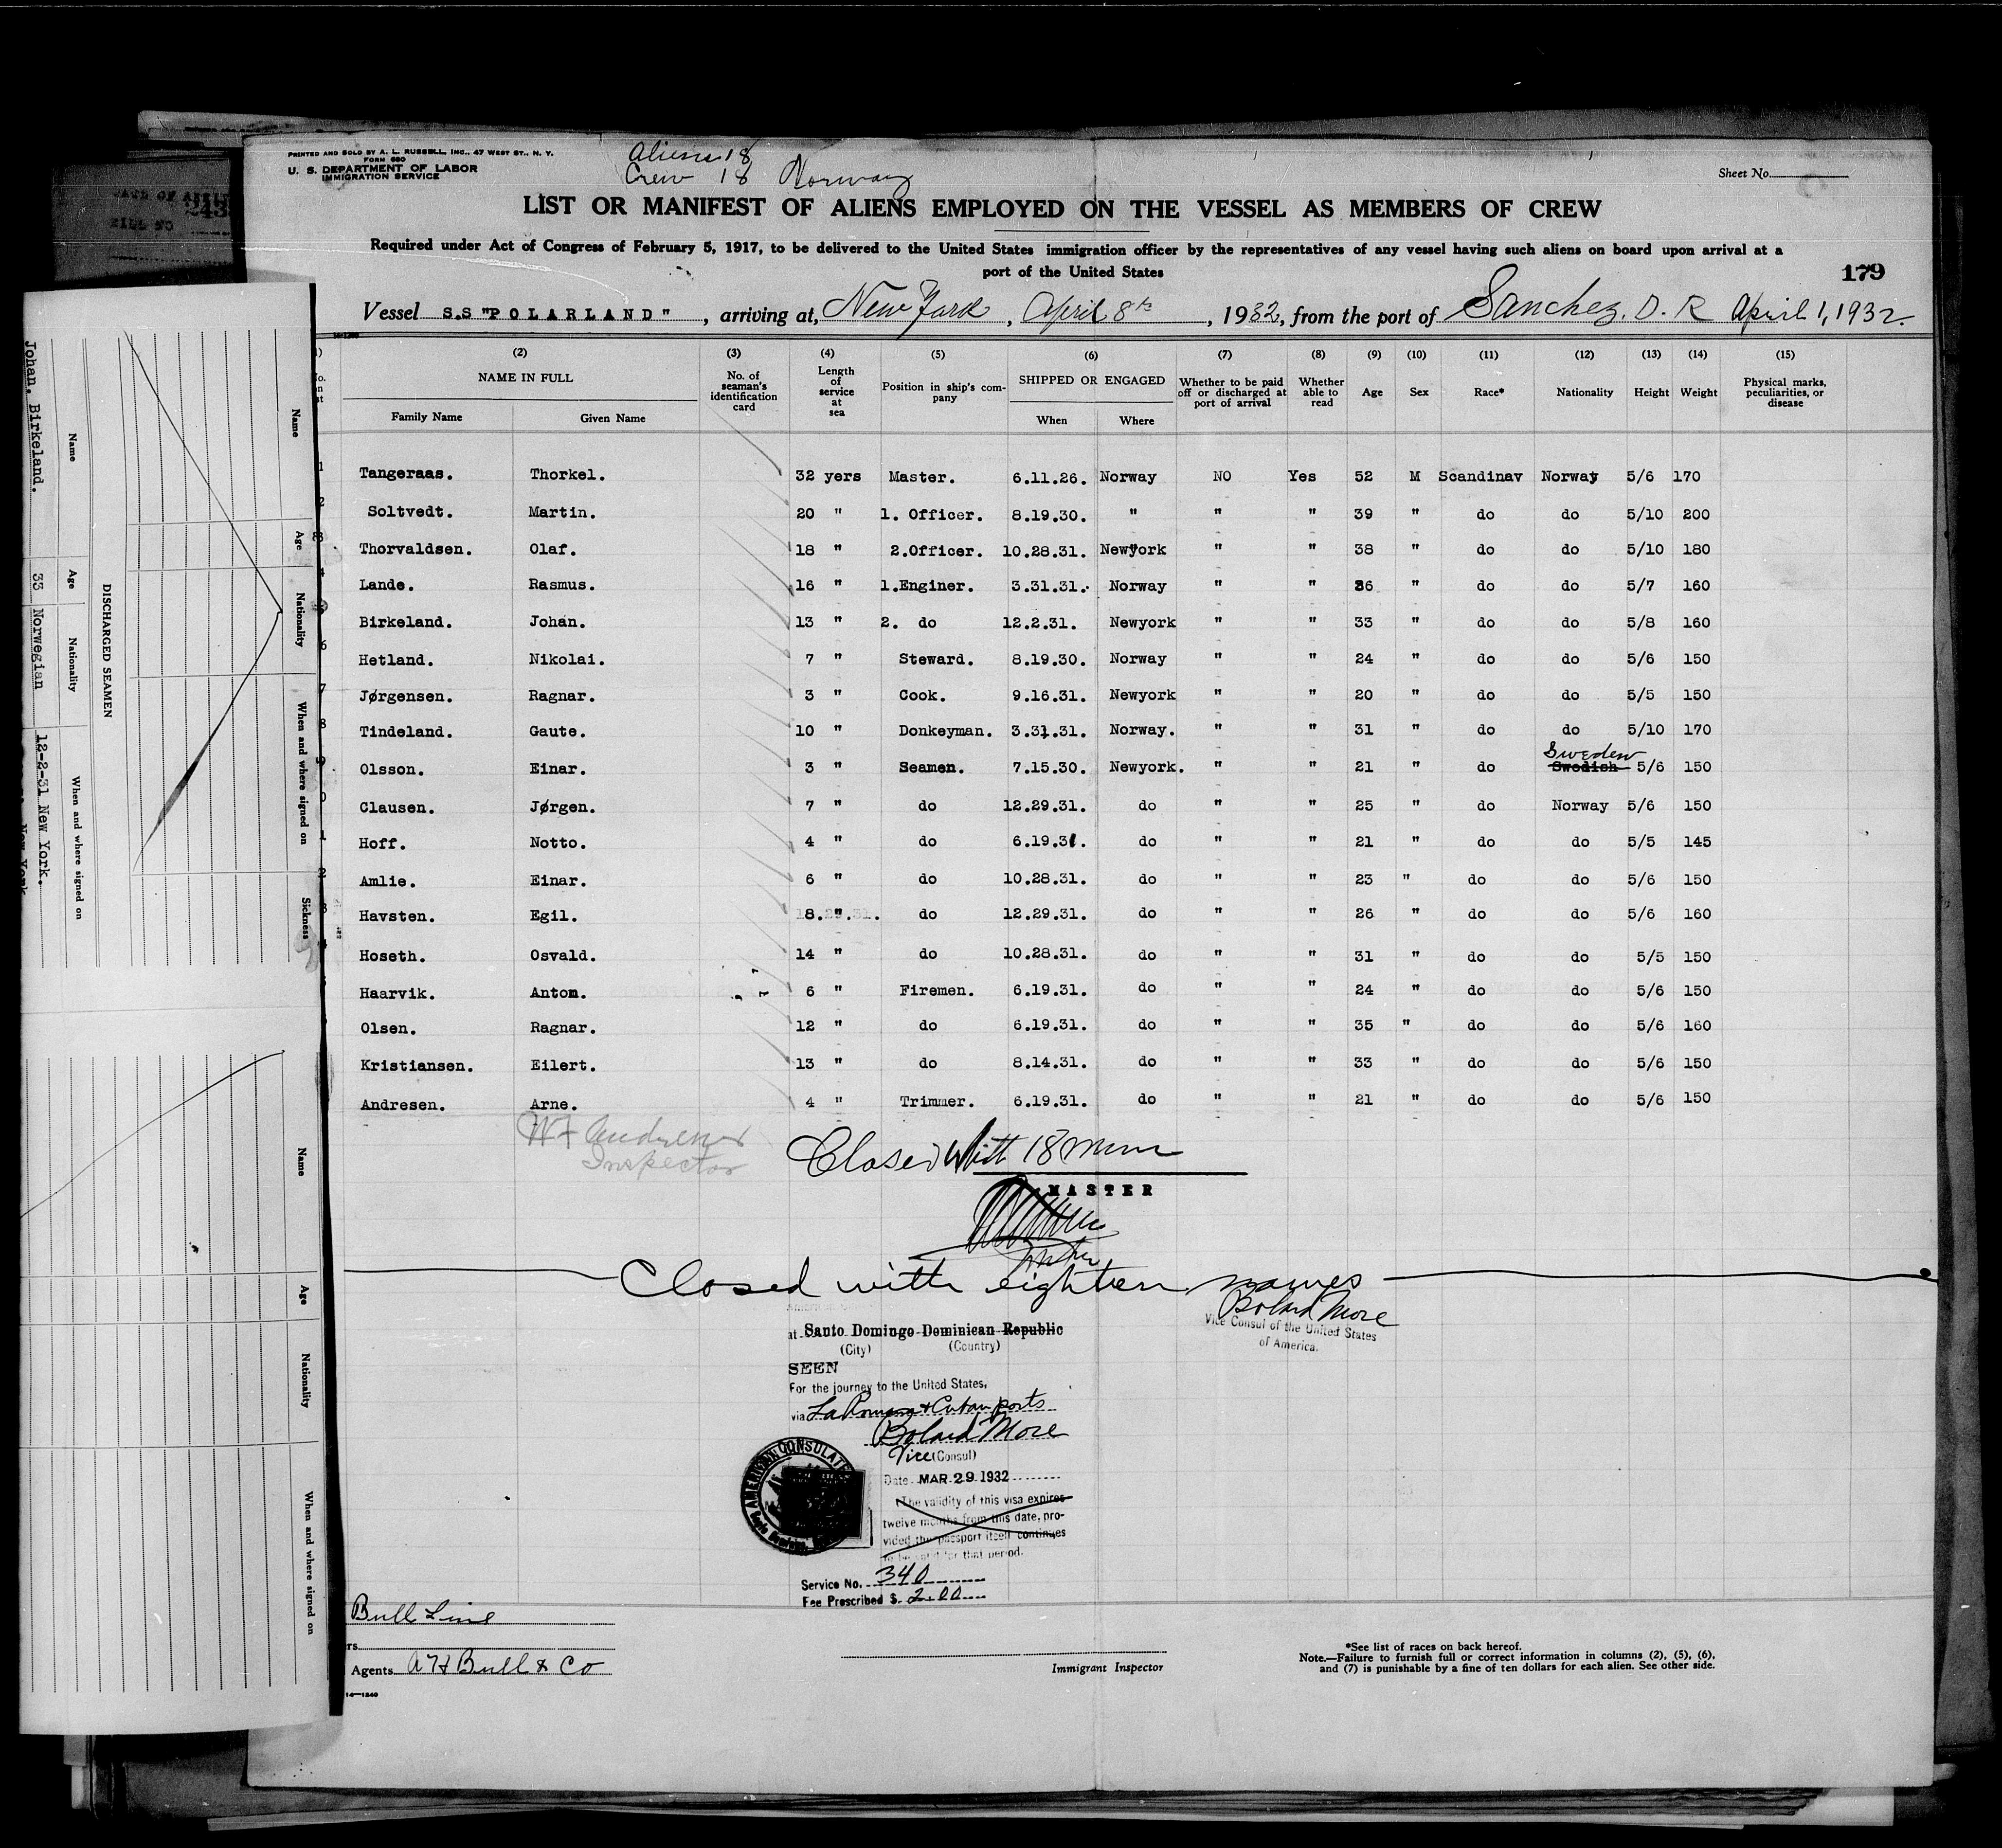 PRINTED AND SOLD BY A. L. RUSSELL, INC., 47 WEST ST., N. Y.
FORM 680
U. S. DEPARTMENT OF LABOR
IMMIGRATION SERVICE
Aliens 18
Crew 18 Norway
Sheet No.
LIST OR MANIFEST OF ALIENS EMPLOYED ON THE VESSEL AS MEMBERS OF CREW
Required under Act of Congress of February 5, 1917, to be delivered to the United States immigration officer by the representatives of any vessel having such aliens on board upon arrival at a
port of the United States
179
Vessel S.S "POLARLAND", arriving at, New York, April 8th, 1932, from the port of Sanchez. D. R April 1, 1932.
(2) (3) (4) (5) (6) (7) (8) (9) (10) (11) (12) (13) (14) (15)
NAME IN FULL
Family Name Given Name
No. of seaman's identification card
Length of service at sea
Position in ship's company
SHIPPED OR ENGAGED
When Where
Whether to be paid off or discharged at port of arrival
Whether able to read
Age Sex Race* Nationality Height Weight
Physical marks, peculiarities, or disease
1 Tangeraas. Thorkel. 32 yers Master. 6.11.26. Norway NO Yes 52 M Scandinav Norway 5/6 170
2 Soltvedt. Martin. 20 " 1. Officer. 8.19.30. " " " 39 " do do 5/10 200
3 Thorvaldsen. Olaf. 18 " 2.Officer. 10.28.31. Newyork " " 38 " do do 5/10 180
Lande. Rasmus. 16 " 1.Enginer. 3.31.31. Norway " " 36 " do do 5/7 160
Birkeland. Johan. 13 " 2. do 12.2.31. Newyork " " 33 " do do 5/8 160
6 Hetland. Nikolai. 7 " Steward. 8.19.30. Norway " " 24 " do do 5/6 150
7 Jørgensen. Ragnar. 3 " Cook. 9.16.31. Newyork " " 20 " do do 5/5 150
8 Tindeland. Gaute. 10 " Donkeyman. 3.31.31. Norway. " " 31 " do do 5/10 170
9 Olsson. Einar. 3 " Seamen. 7.15.30. Newyork. " " 21 " do Swedish Sweden 5/6 150
0 Clausen. Jørgen. 7 " do 12.29.31. do " " 25 " do Norway 5/6 150
1 Hoff. Notto. 4 " do 6.19.31. do " " 21 " do do 5/5 145
2 Amlie. Einar. 6 " do 10.28.31. do " " 23 " do do 5/6 150
3 Havsten. Egil. 8. " do 12.29.31. do " " 26 " do do 5/6 160
Hoseth. Osvald. 14 " do 10.28.31. do " " 31 " do do 5/5 150
Haarvik. Anton. 6 " Firemen. 6.19.31. do " " 24 " do do 5/6 150
Olsen. Ragnar. 12 " do 6.19.31. do " " 35 " do do 5/6 160
Kristiansen. Eilert. 13 " do 8.14.31. do " " 33 " do do 5/6 150
Andresen. Arne. 4 " Trimmer. 6.19.31. do " " 21 " do do 5/6 150
Inspector
Closed Witt 18 men
MASTER
Closed with eighteen names
Bolard More
Vice Consul of the United States
of America.
at Santo Domingo Dominican Republic
(City) (Country)
SEEN
For the journey to the United States,
via La Romana & Cuban ports
Bolard More
Vice (Consul)
AMERICAN CONSULATE
Date MAR 29 1932
The validity of this visa expires
twelve months from this date, pro-
vided the passport itself continues
to be valid for that period.
Service No. 340
Fee Prescribed $ 2.00
Bull Line
rs
Agents A H Bull & Co
14—1240
Immigrant Inspector
*See list of races on back hereof.
Note.—Failure to furnish full or correct information in columns (2), (5), (6),
and (7) is punishable by a fine of ten dollars for each alien. See other side.
DISCHARGED SEAMEN
Name Age Nationality When and where signed on
Johan. Birkeland. 33 Norwegian 12-2-31 New York.
Name Age Nationality When and where signed on Sickness
Name Age Nationality When and where signed on
243